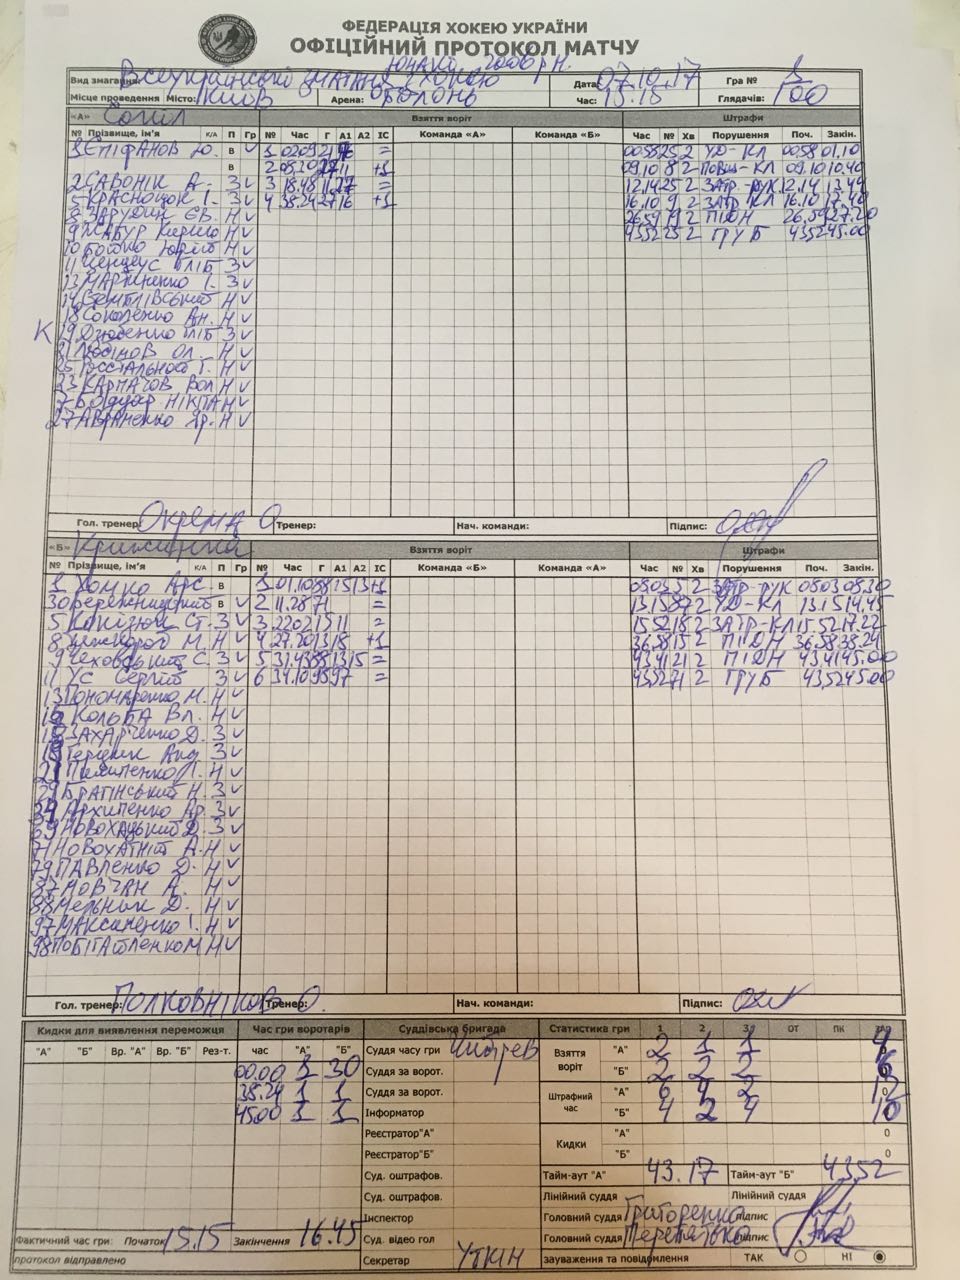 ФЕДЕРАЦІЯ ХОКЕЮ УКРАЇНИ
ОФІЦІЙНИЙ ПРОТОКОЛ МАТЧУ
Вид змагань: Всеукраїнські змагання з хокею Дата: 07.10.17 Гра №
Місце проведення Місто: Київ Арена: Оболонь Час: 15.15 Глядачів: 100
«А» Сокіл Взяття воріт Штрафи
№ Прізвище, ім'я К/А П Гр № Час Г А1 А2 ІС Команда «А» Команда «Б» Час № Хв Порушення Поч. Закін.
ЄПІФАНОВ Ю. В 1 02.09 = 00.58 25 2 УД-КЛ 00.58 01.10
В 2 08.10 27 11 +1 09.10 8 2 КЛ 09.10 10.40
2 САВОНІК А. З 3 18.48 11 27 = 12.14 25 2 ЗАТР-РУК 12.14
5 КРАСНОЩОК І. З 4 38.24 27 16 +1 16.10 9 2 ЗАТР КЛ 16.10 17.40
8 ЗАРУДИН ЄВ. Н 26.59 19 2 ПІДН 26.59
9 Кирило Н 43.52 25 2 ГРУБ 43.52 45.00
10 Бойко Юрій Н
11 ГЛІБ З
13 МАРТИНЕНКО І. З
14 Н
18 Соколенко Ан. Н
К 19 Дзюбенко ГЛІБ З
21 Любімов Ол. Н
25 Н
23 КАРМАЧОВ Вол Н
НІКІТА Н
27 АВРАМЕНКО Яр. Н
Гол. тренер: Окрема О Тренер: Нач. команди: Підпис:
«Б» Крижинка Взяття воріт Штрафи
№ Прізвище, ім'я К/А П Гр № Час Г А1 А2 ІС Команда «Б» Команда «А» Час № Хв Порушення Поч. Закін.
1 Хомко Арс. В 1 01.10 88 15 13 +1 08.03 5 2 ЗАТР-РУК 08.03 08.10
30 Бережницький В 2 11.28 71 = 13.15 87 2 УД-КЛ 13.15 14.45
5 Ст. З 3 22.02 15 11 = 15.52 18 2 ЗАТР-КЛ 15.52 17.22
8 М. Н 4 27.20 13 18 +1 36.58 15 2 ПІДН 36.58 38.24
9 Чеховський С. З 5 31.43 88 13 15 = 43.41 21 2 ПІДН 43.41 45.00
11 Ус Сергій З 6 34.10 98 97 = 43.52 71 2 ГРУБ 43.52 45.00
13 Пономаренко М. Н
15 КОЛЬБА Вл. Н
ЗАХАРЧЕНКО Д. З
18 Герцик Анд З
21 Пилипенко Н
29 БРАГІНСЬКИЙ Н. З
Архипенко Ар. З
69 НОВОХАЦЬКИЙ Д. З
71 НОВОХАТНІЙ А. Н
79 ПАВЛЕНКО Д. Н
87 МОВЧАН А. Н
88 Мельник Д. Н
97 МАКСИМЕНКО І. Н
98 ПОБІГАЙЛЕНКО М Н
Гол. тренер: ПОЛКОВНІКОВ О. Тренер: Нач. команди: Підпис:
Кидки для виявлення переможця Час гри воротарів Суддівська бригада Статистика гри 1 2 3 ОТ ПК ЗАГ
"А" "Б" Вр. "А" Вр. "Б" Рез-т. час "А" "Б" Суддя часу гри Взяття воріт "А" 2 1 1 4
00.00 1 30 Суддя за ворот. "Б" 2 2 2 6
38.24 1 1 Суддя за ворот. Штрафний час "А" 6 4 2 12
45.00 1 1 Інформатор "Б" 4 2 4 10
Реєстратор"А" Кидки "А" 0
Реєстратор"Б" "Б" 0
Суд. оштрафов. Тайм-аут "А" 43.17 Тайм-аут "Б" 43.52
Суд. оштрафов. Лінійний суддя Лінійний суддя
Інспектор Головний суддя Григоренко підпис
Фактичний час гри: Початок 15.15 Закінчення 16.45 Суд. відеo гол Головний суддя Перетятько підпис
протокол відправлено Секретар УТКІН зауваження та повідомлення ТАК НІ